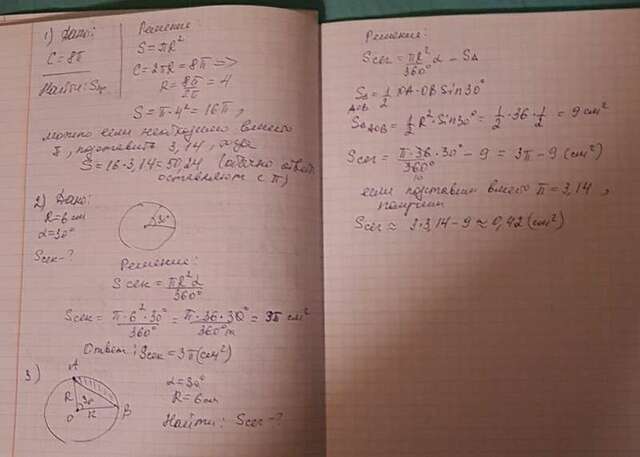 1) Дано:
C = 8π
Найти: Sкр.
Решение:
S = πR²
C = 2πR = 8π =>
R = 8π/2π = 4
S = π·4² = 16π,
можно если необходимо вместо
π, подставить 3,14, тогда
S = 16·3,14 = 50,24 (обычно ответ
оставляют с π)
2) Дано:
R = 6 см
α = 30°
Sсек - ?
30°
Решение:
Sсек = πR²α/360°
Sсек = π·6²·30°/360° = π·36·30°/360° = 3π см²
Ответ: Sсек = 3π (см²)
3)
A
R
30°
O
R
B
α = 30°
R = 6 см
Найти: Sсег - ?
Решение:
Sсег = πR²/360° α - SΔ
SΔAOB = 1/2 OA·OB Sin30°
SΔAOB = 1/2 R²·Sin30° = 1/2·36·1/2 = 9 см²
Sсег = π·36·30°/360° - 9 = 3π - 9 (см²)
если подставим вместо π = 3,14,
получим
Sсег ≈ 3·3,14 - 9 ≈ 0,42 (см²)